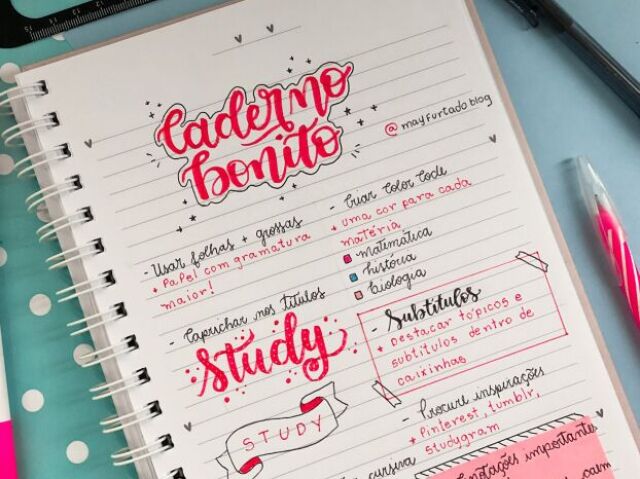 caderno
bonito
@mayfurtadoblog
- Usar folhas + grossas
+ Papel com gramatura
maior!
- Criar Color Code
+ uma cor para cada
matéria
matemática
história
biologia
- Caprichar nos títulos
study
STUDY
- Subtítulos
+ Destacar tópicos e
subtítulos dentro de
caixinhas
- Procure inspirações
+ Pinterest, tumblr,
studygram
cursiva
Anotações importantes
caem
15
14